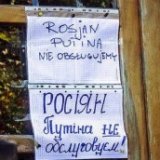 ROSJAN
PUTINA
NIE OBSŁUGUJEMY
РОСІЯН
Путіна НЕ
обслуговуєм!